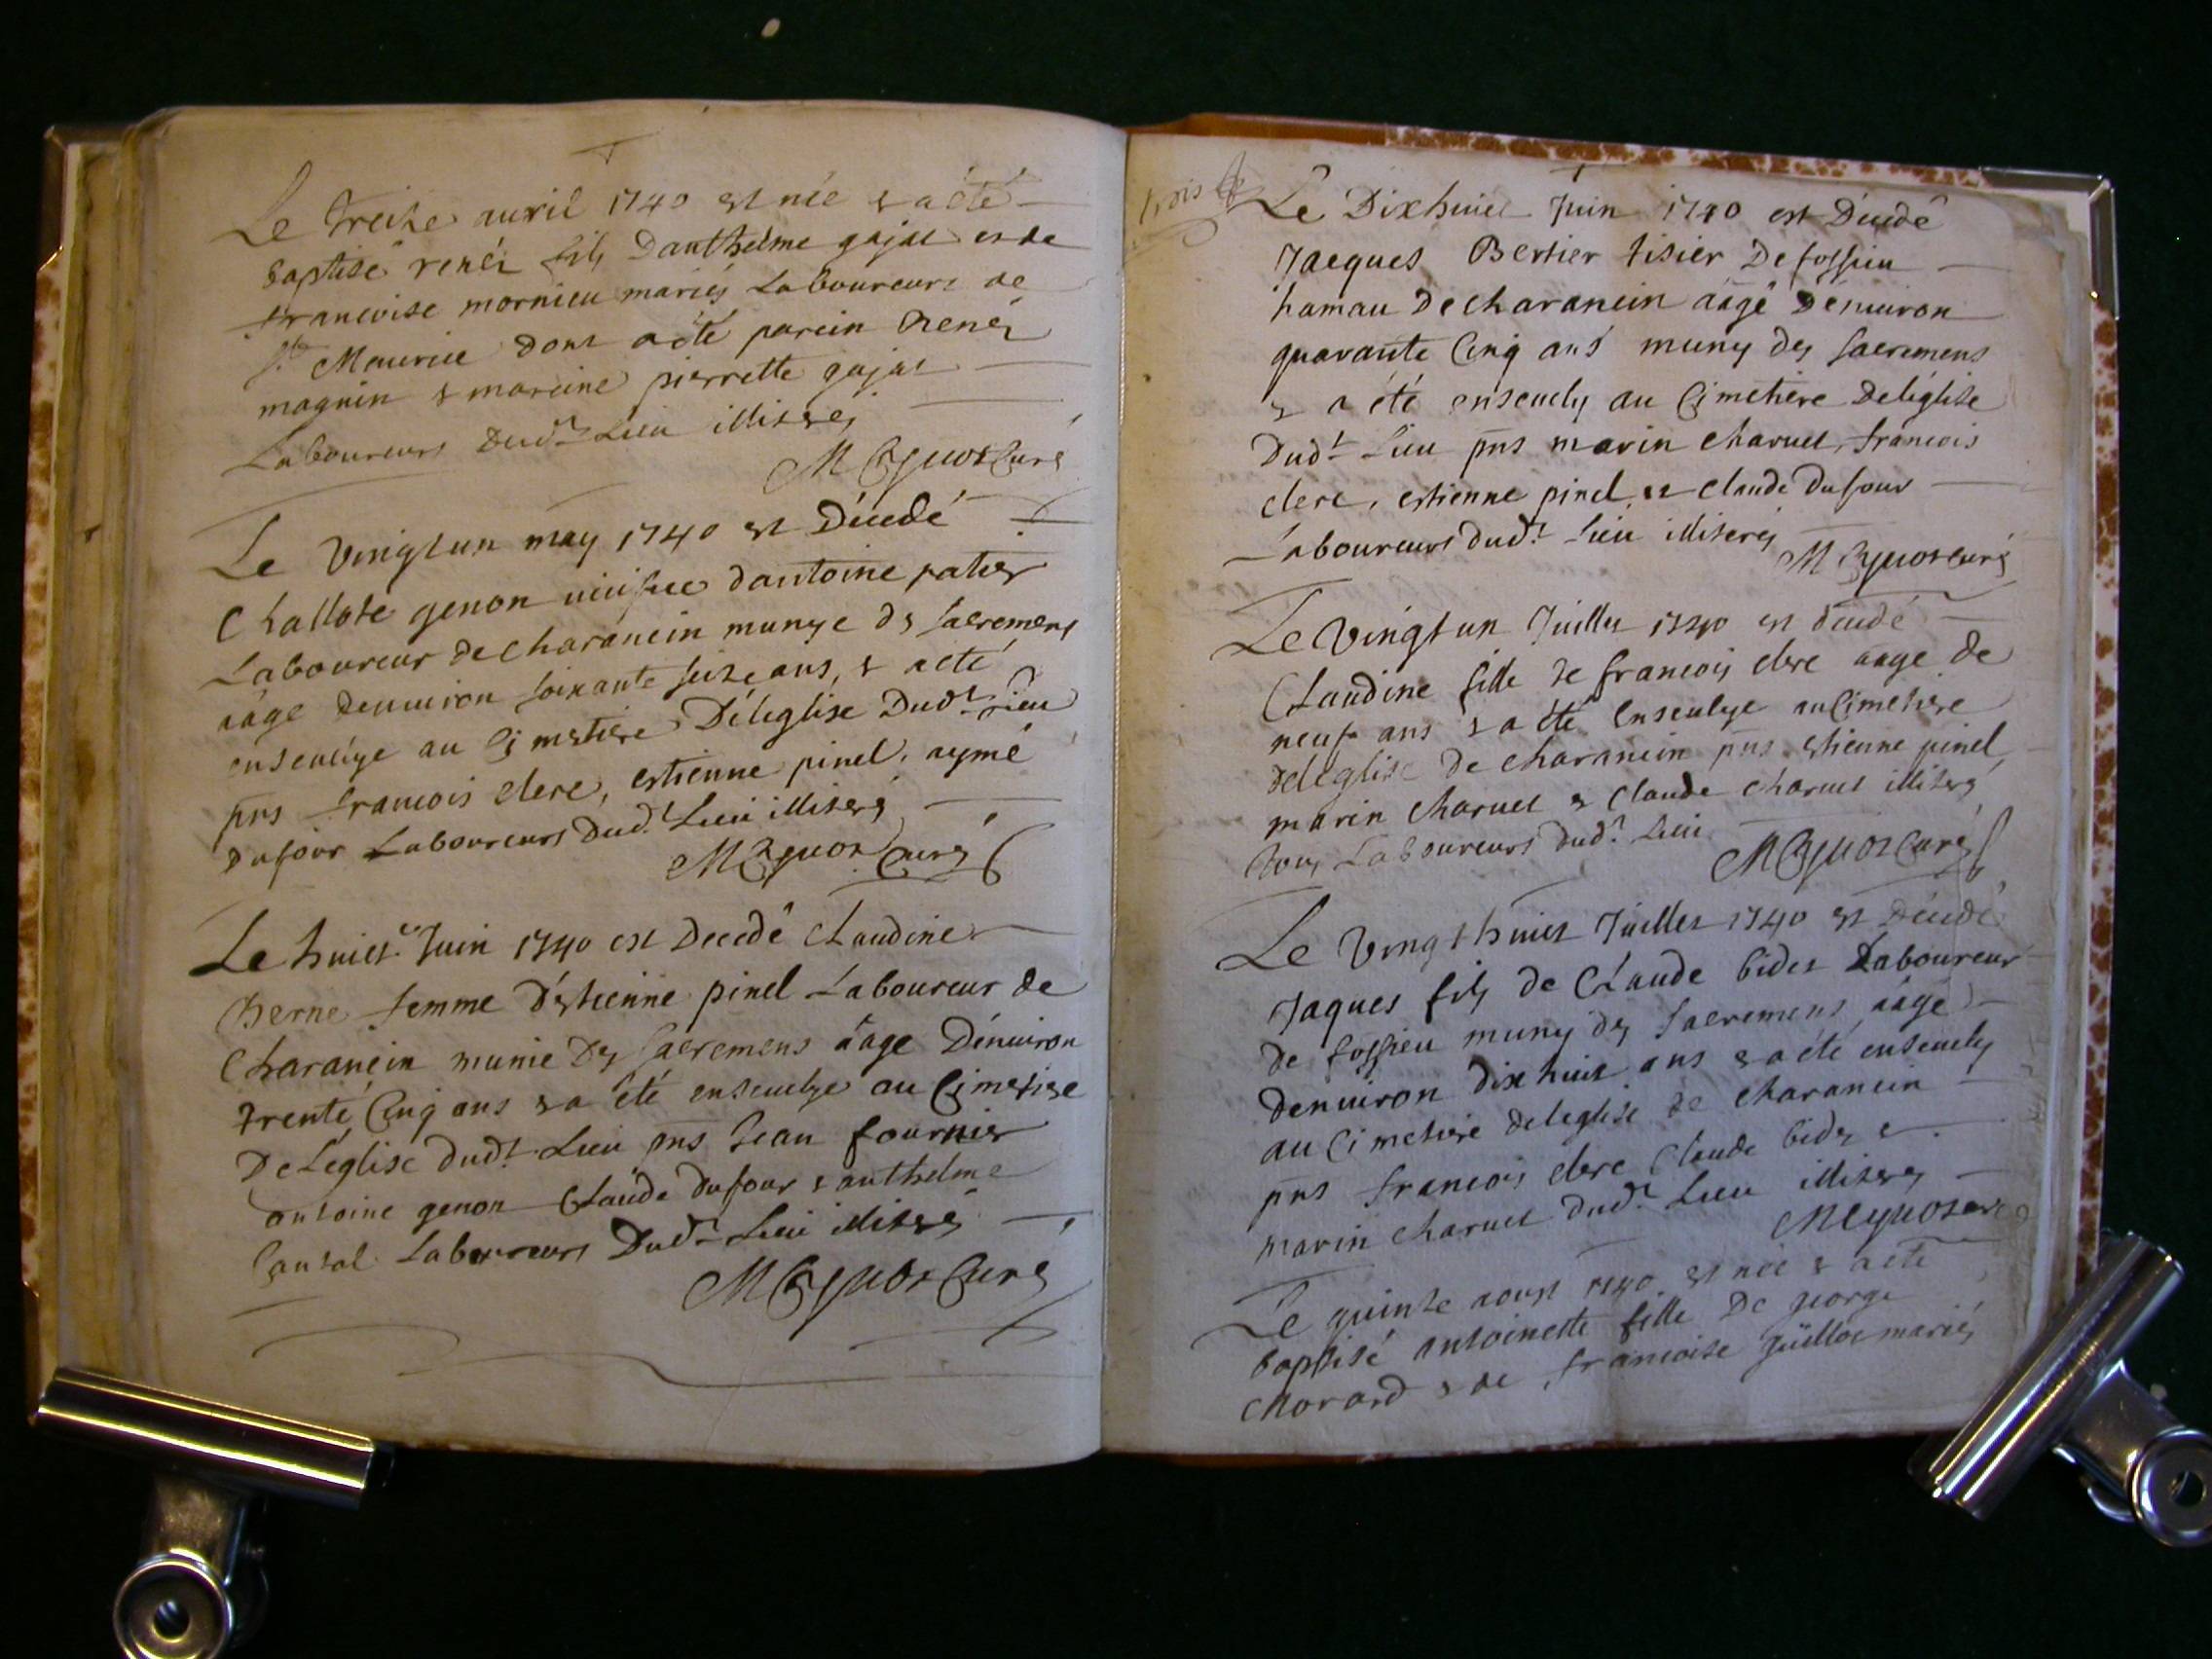 Le treize auril 1740 est née & a été
baptisé renéz fils danthelme gajat et de
francoise mornieu mariés Laboureurs de
St Maurice dont a été parein Renéz
magnin & mareine pierrette gajat
Laboureurs dudt Lieu illiterés
Curé
Le vingtun may 1740 est décedé
genon d'antoine patier
Laboureur de charancin munye des sacremens
aâge denuiron soixante seize ans, & a eté
enseuelye au Cimetiere de l'eglise dudt Lieu
pns francois clerc, estienne pinel, aymé
dufour Laboureurs dudt Lieu illiterés
Curé
Le huict.e Juin 1740 est Decedê Claudine
femme d'estienne pinel Laboureur de
Charancin munie des sacremens aâge dénuiron
trente Cinq ans & a été enseuelye au Cimetiere
De L'église dudt Lieu pns Jean fournier
antoine genon Claude dufour & anthelme
Laboureurs dudt Lieu illiterés
Curé
trois
Le Dixhuict Juin 1740 est Décedê
Jacques Bertier tisier De fossieu
hamau De charancin aâgê dénuiron
quarante Cinq ans muny des sacremens
& a été enseuely au Cimetiere de l'église
dudt Lieu pns marin charuet, francois
clerc, estienne pinel et claude dufour
Laboureurs dudt Lieu illiterés
curé
Le vingt un Juillet 1740 est décedé
Claudine fille de francois clerc aage de
neuf ans & a été Enseuelye au Cimetiere
de l'eglise de charancin pns estienne pinel,
marin charuet & claude charuet illiterés
tous Laboureurs dudt Lieu
Curé
Le vingthuict Juillet 1740 est décedé
Jaques fils de Claude bidet Laboureur
de fossieu muny des sacremens aâgé
denuiron dix huit ans & a été enseuely
au Cimetiere de leglise de charancin
pns francois clerc Claude bidet et
marin charuet dudt Lieu illiterés
Le quinze aoust 1740 est née & a eté
baptisé antoinette fille De george
chorard & de francoise mariés